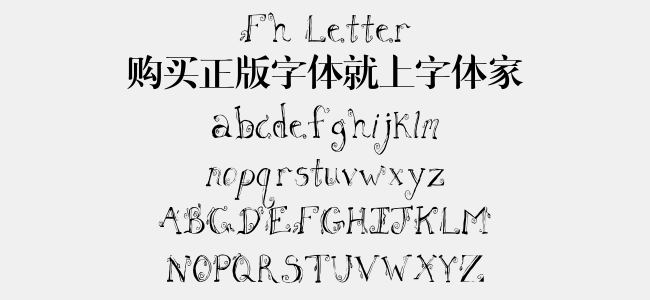 Fh Letter
购买正版字体就上字体家
abcdefghijklm
nopqrstuvwxyz
ABCDEFGHIJKLM
NOPQRSTUVWXYZ